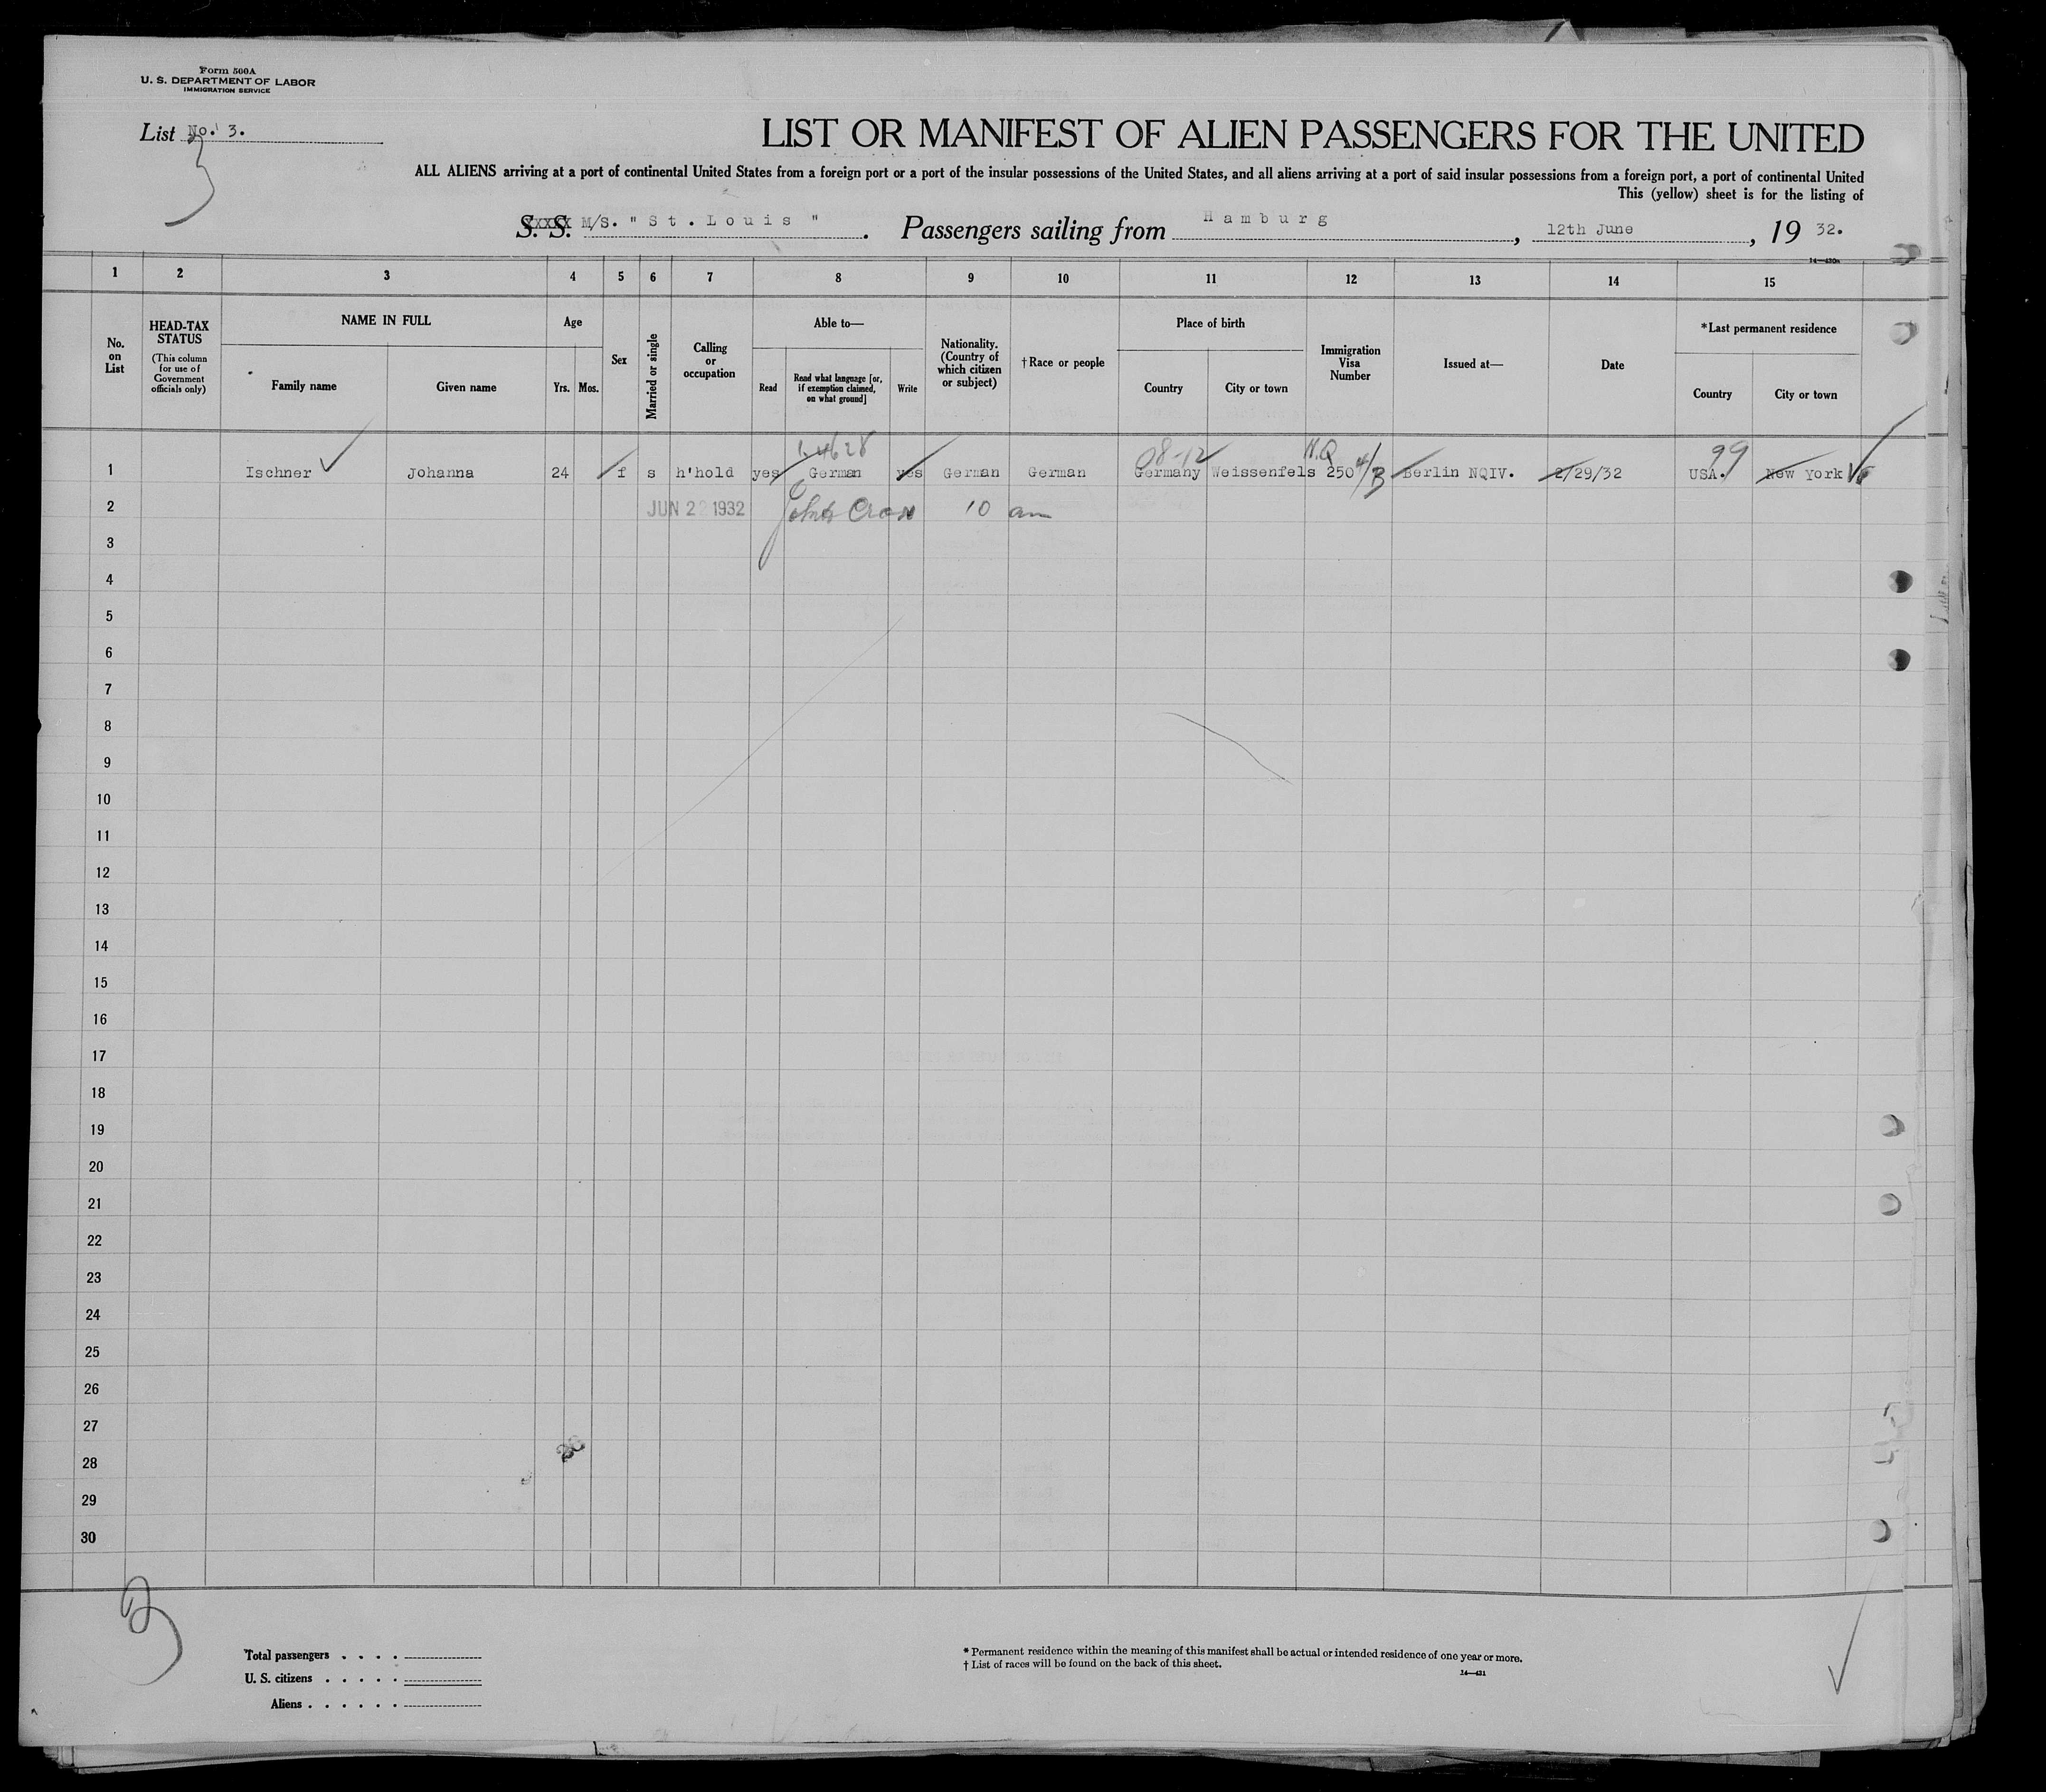 Form 500A
U. S. DEPARTMENT OF LABOR
IMMIGRATION SERVICE
List No. 3.
3
LIST OR MANIFEST OF ALIEN PASSENGERS FOR THE UNITED
ALL ALIENS arriving at a port of continental United States from a foreign port or a port of the insular possessions of the United States, and all aliens arriving at a port of said insular possessions from a foreign port, a port of continental United
This (yellow) sheet is for the listing of
S. S. M/S. " St. Louis ". Passengers sailing from Hamburg, 12th June, 19 32.
1 2 3 4 5 6 7 8 9 10 11 12 13 14 15
No. on List
HEAD-TAX STATUS
(This column for use of Government officials only)
NAME IN FULL
Family name
Given name
Age
Yrs.
Mos.
Sex
Married or single
Calling or occupation
Able to—
Read
Read what language [or, if exemption claimed, on what ground]
Write
Nationality. (Country of which citizen or subject)
†Race or people
Place of birth
Country
City or town
Immigration Visa Number
Issued at—
Date
*Last permanent residence
Country
City or town
08-12 99
1 Ischner Johanna 24 f s h'hold yes German yes German German Germany Weissenfels 250 Berlin NQIV. 2/29/32 USA. New York
2 JUN 22 1932 10 am
3
4
5
6
7
8
9
10
11
12
13
14
15
16
17
18
19
20
21
22
23
24
25
26
27
28
29
30
Total passengers . . . .
U. S. citizens . . . . .
Aliens . . . . . .
* Permanent residence within the meaning of this manifest shall be actual or intended residence of one year or more.
† List of races will be found on the back of this sheet.
14—431